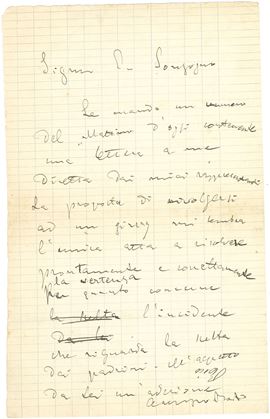 Signor E. Sonzogno
Le mando un numero
del Mattino d'oggi contenente
una lettera a me
diretta dai miei rappresentanti
La proposta di rivolgersi
ad un giury mi sembra
l'unica atta a risolvere
prontamente e correttamente
la vertenza
Per quanto concerne
la scelta l'incidente
che riguarda la scelta
dai padrini
da lei un'adesione